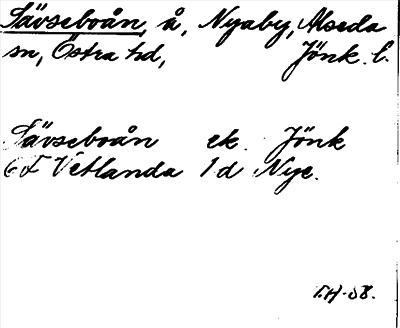 Sävseboån, å, Nyaby, Alseda
sn, Östra hd, Jönk. l.
Sävseboån ek. Jönk
6F Vetlanda 1d Nye.
T.H-58.